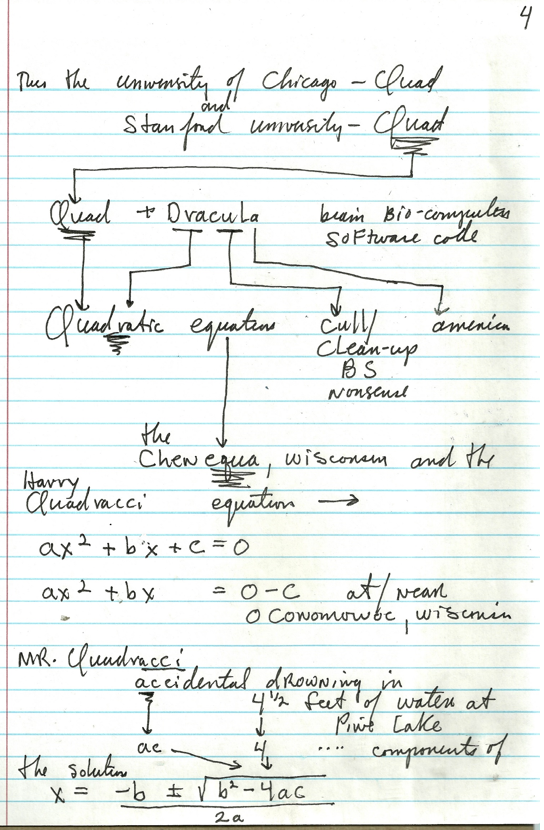 4
Thus the university of Chicago - Quad
and
Stanford university - Quad
Quad + Dracula brain Bio-computer
Software code
Quadratic equation cull/ america
clean-up
BS
nonsense
the
Chenequa, wisconsin and the
Harry
Quadracci equation →
ax² + bx + c = 0
ax² + bx = 0 - C at/near
OConomowoc, wisconsin
MR. Quadracci
accidental drowning in
4 1/2 feet of water at
Pine Lake
ac 4 .... components of
the solution
x = -b ± √b² - 4ac
2a